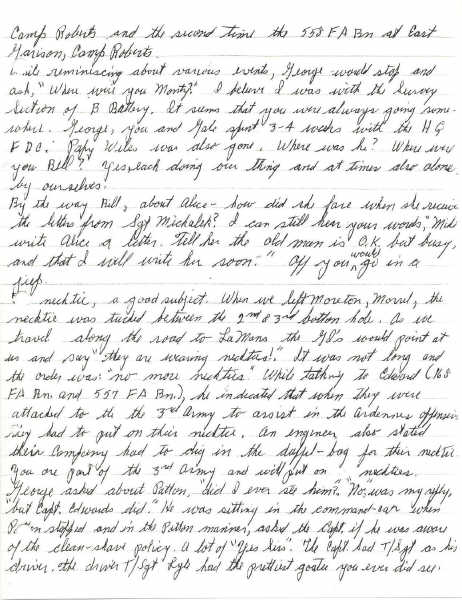 Camp Roberts and the second time the 558 FA Bn at East
Garison, Camp Roberts.
reminescing about various events, George would stop and
ask, "Where were you Monty?" I believe I was with the Survey
Section of B Battery. It seems that you were always going some-
where. George, you and Gale spent 3-4 weeks with the HQ
FDC. Papy Wiles was also gone. Where was he? Where were
you Bill?" Yes, each doing our thing and at times also alone
by ourselves.
By the way Bill, about Alice - how did she fare when she receive
the letters from Sgt Michalek? I can still hear your words, "Mike
write Alice a letter. Tell her the old man is O.K. but busy,
and that I will write her soon." Off you would go in a
jeep.
necktie, a good subject. When we left Moreton, Morval, the
necktie was tucked between the 2nd & 3rd button hole. As we
travel along the road to LaMans the GI's would point at
us and say "they are wearing neckties!". It was not long and
the order was: "no more neckties" While talking to Edward (168
FA Bn. and 557 FA Bn.), he indicated that when they were
attached to the the 3rd Army to assist in the Ardennes offensive
they had to put on their necktie. An engineer also stated
their Company had to dig in the duffel-bag for their necktie.
You are part of the 3rd Army and will put on neckties.
George asked about Patton, "did I ever see him?" "No," was my reply,
"but Capt. Edwards did." He was sitting in the command-car when
stopped and in the Patton manner, asked the Capt. if he was aware
of the clean-shave policy. A lot of "Yes Sirs". The Capt. had T/Sgt as his
driver. The driver T/Sgt Lyle had the prettiest goatee you ever did see.